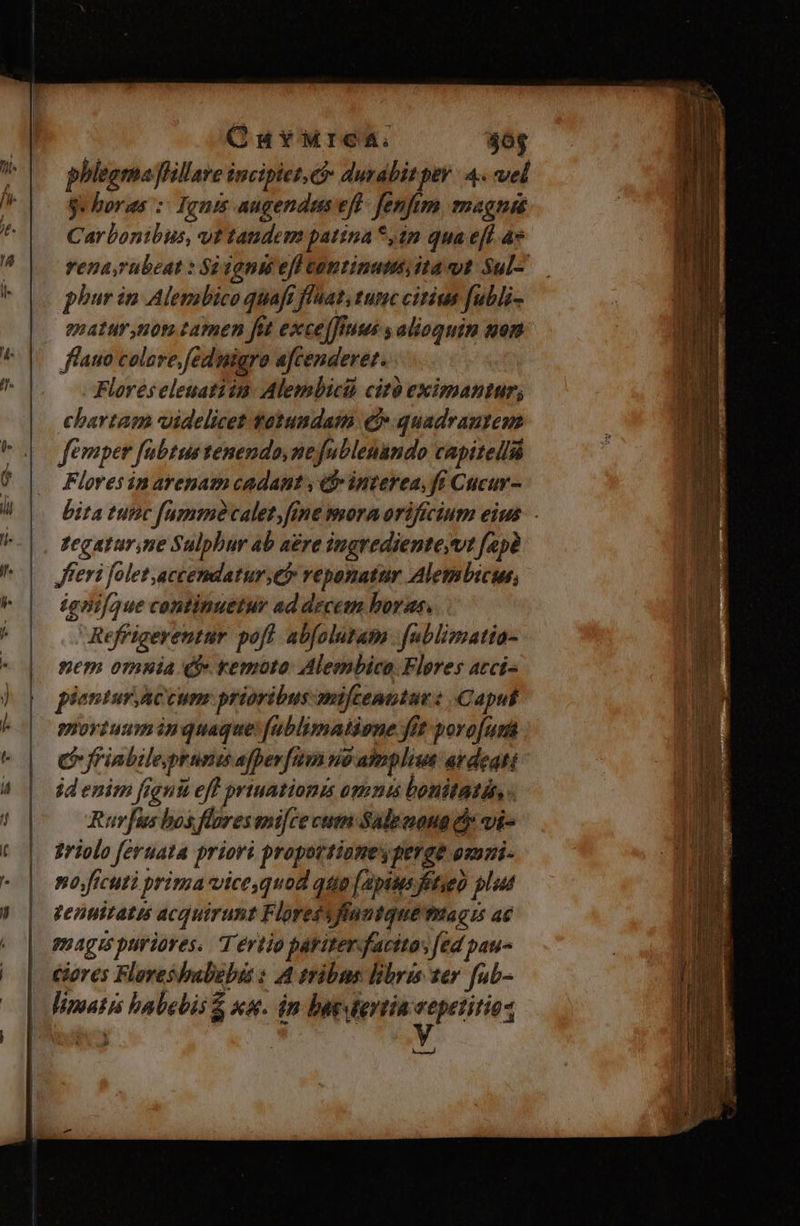 CHYMICA. 305
phlegma ſtillare incipiet, & durabit per 4. vel
5. horas : Ignis augendus eſt ſenſim magnis
Carbonibus, vt tandem patina *, in qua eſt a-
rena, rubeat : Si ignis eſt continuus, ita vt Sul-
phur in Alembico quaſi fluat, tunc citius ſubli-
matur, non tamen ſit exceſſiuus, alioquin non
flauo colore, ſed nigro aſcenderet.
Flores eleuati in Alembicũ citò eximantur,
chartam videlicet rotundam & quadrantem
ſemper ſubtus tenendo, ne ſubleuando capitellũ
Flores in arenam cadant, & interea, ſi Cucur-
bita tunc ſummè calet, ſine mora orificium eius
tegatur, ne Sulphur ab aëre ingrediente, vt ſæpè
fieri ſolet, accendatur, & reponatur Alembicus,
igniſque continuetur ad decem horas.
Refrigerentur poſt abſolutam ſublimatio-
nem omnia & remoto Alembico Flores acci-
piantur, ac cum prioribus miſceantur : Caput
mortuum in quaque ſublimatione fit poroſum
& friabile, prunis aſperſum nõ amplius ardeat:
id enim ſignũ eſt priuationis omnis bonitatis.
Rurſus hos flores miſce cum Sale nouo & vi-
triolo ſeruata priori proportione, perge omni-
no, ſicuti prima vice, quod quo ſæpius fit, eò plus
tenuitatis acquirunt Flores, fiuntque magis ac
magis puriores. Tertio pariter facito, ſed pau-
ciores Flores habebis : A tribus libris ter ſub-
limatis habebis ℥ xx. in hac tertia repetitio-
V